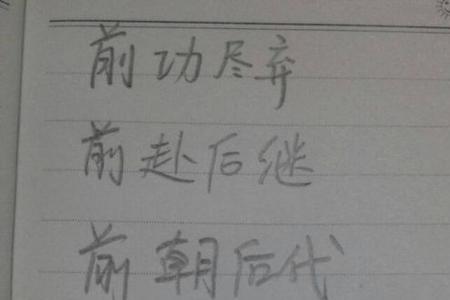 前功尽弃
前赴后继
前朝后代